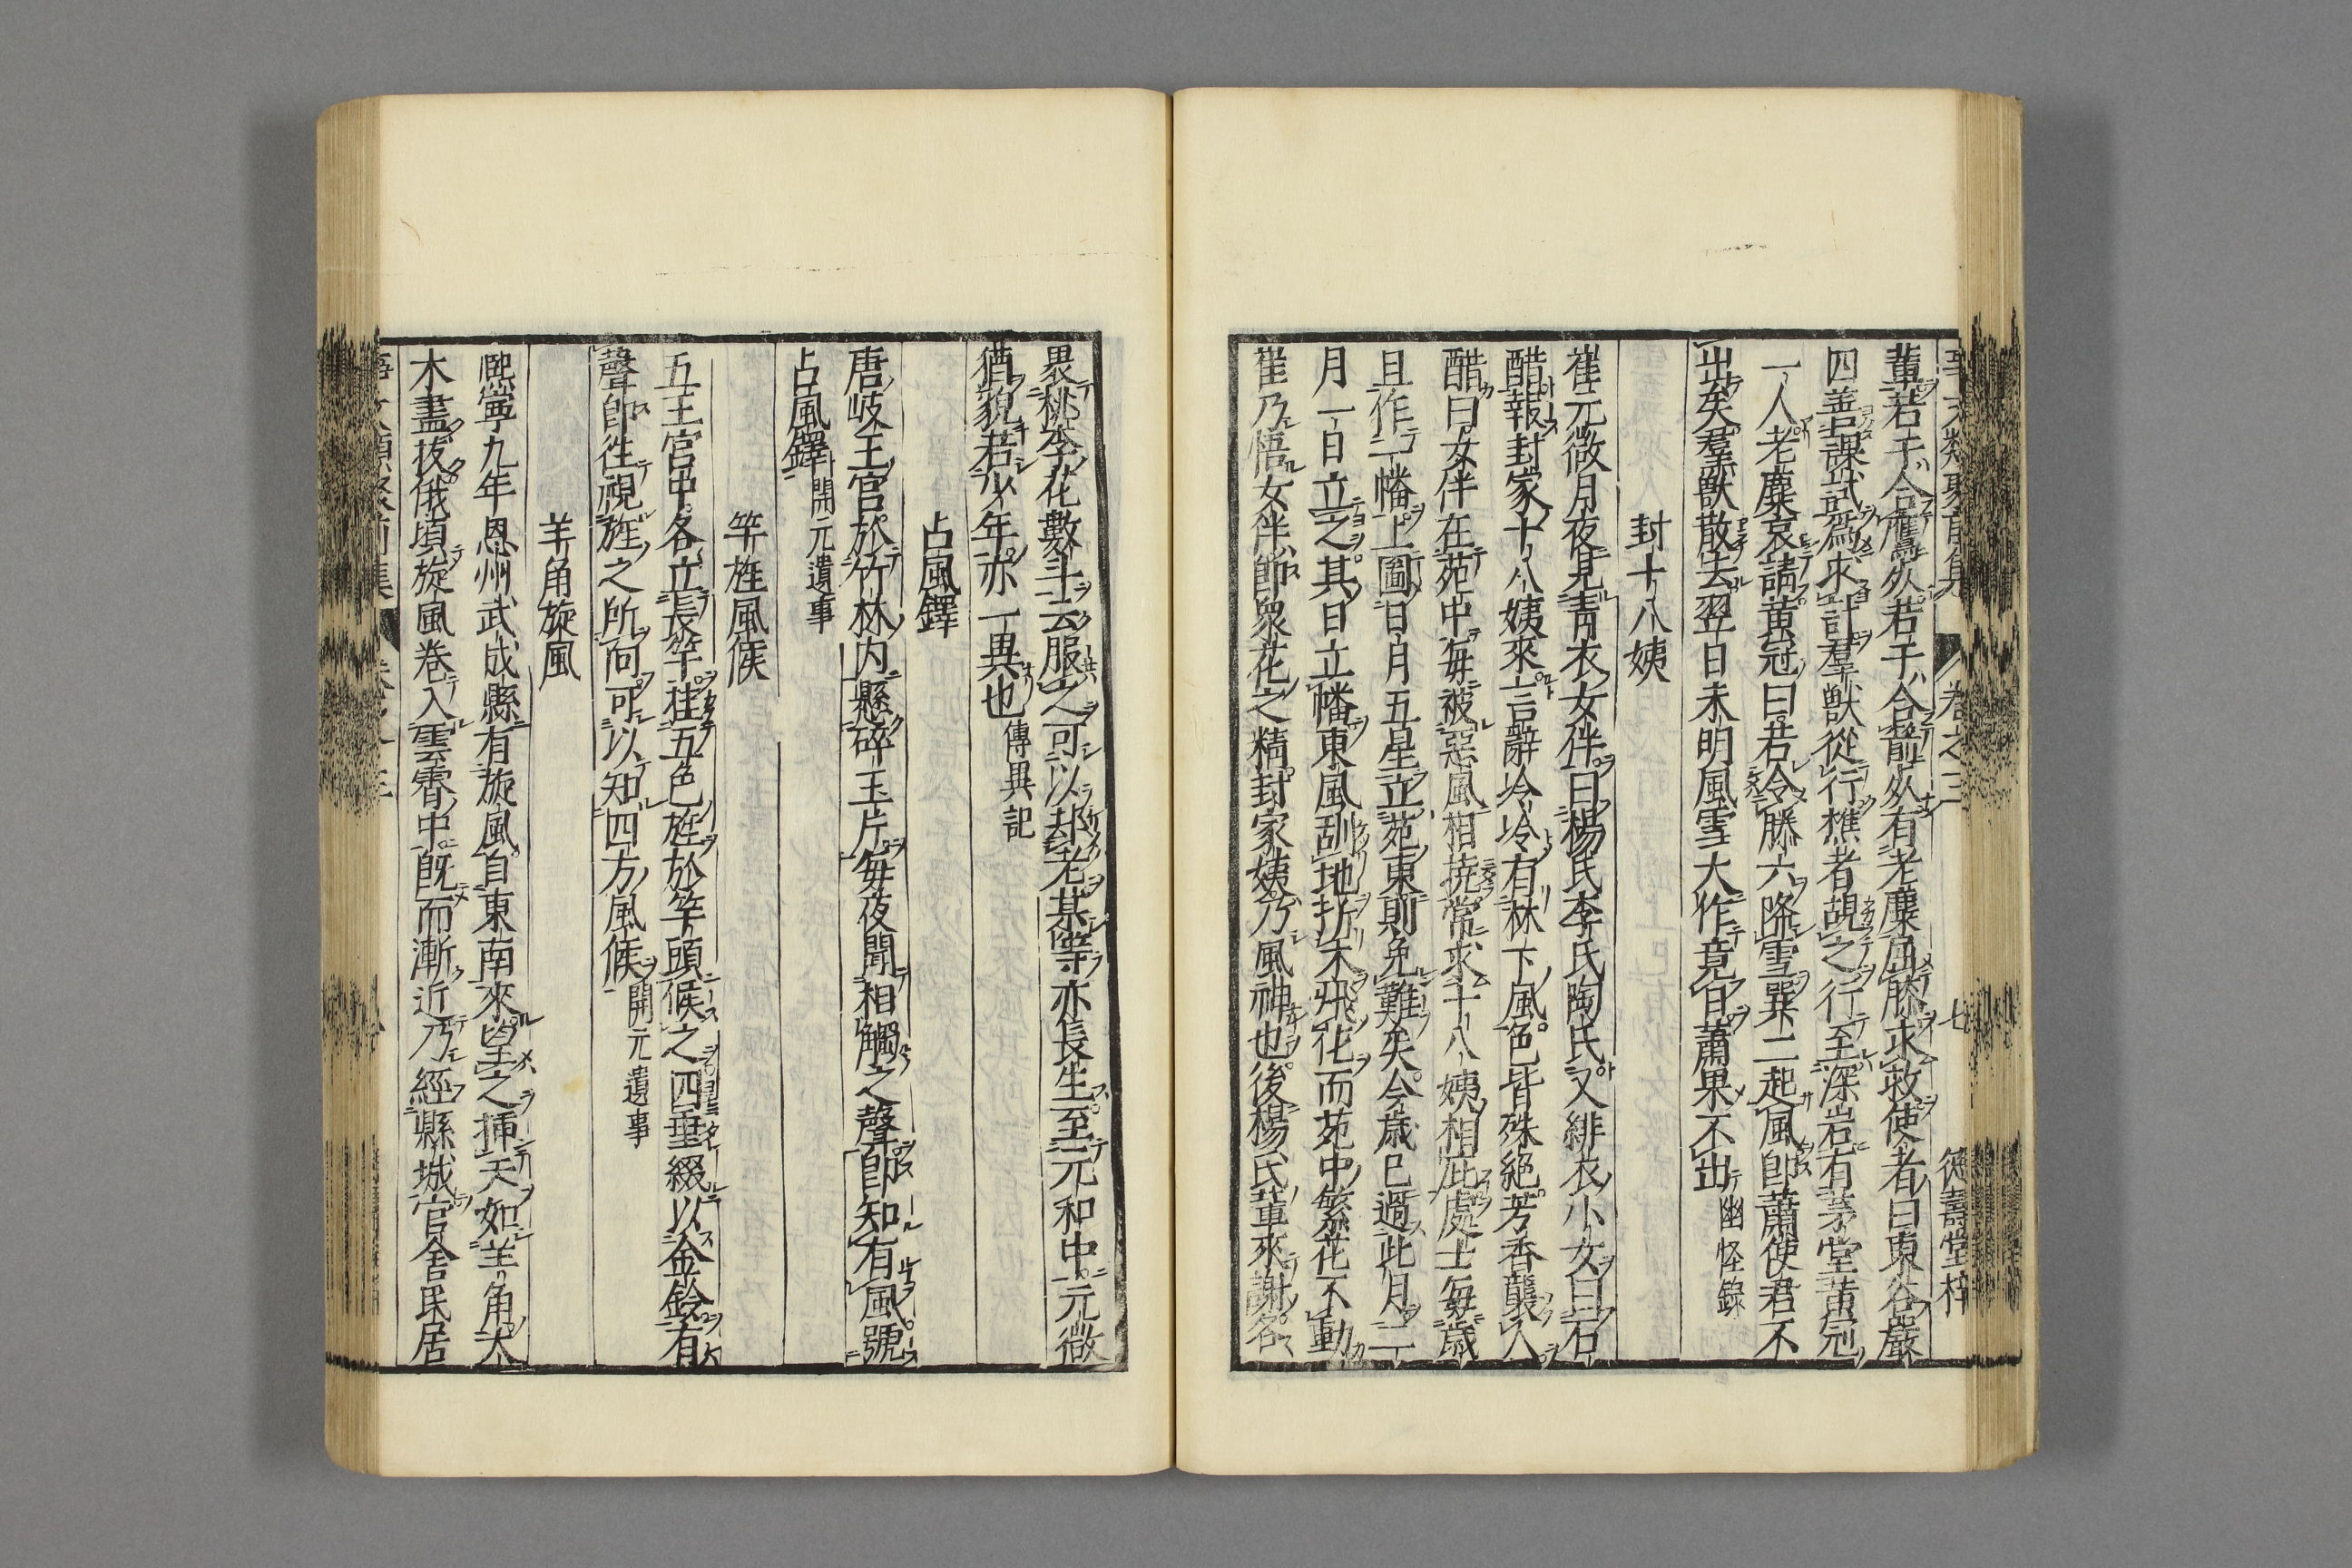 事文類聚前集 卷之三 七 德壽堂梓
輩若干合鷹死若干合箭死有老麋屈膝求救使者曰東谷嚴
四善課試爲求計羣獸從行樵者覘之行至深岩有茅堂黃冠
一人老麋哀請黃冠曰若令滕六降雪巽二起風卽蕭使君不
出矣羣獸散去翌日未明風雪大作竟日蕭果不出幽怪錄
封十八姨
崔元微月夜見青衣女伴曰楊氏李氏陶氏又緋衣小女曰石
醋報封家十八姨來言辭冷冷有林下風色皆殊絕芳香襲人
醋曰女伴在苑中每被惡風相撓常求十八姨相庇處士每歲
旦作一幡上圖日月五星立苑東則免難矣今歲已過此月二
月一日立之其日立幡東風刮地折木飛花而苑中繁花不動
崔乃悟女伴卽衆花之精封家姨乃風神也後楊氏輩來謝各
褁桃李花數斗云服之可以却老某等亦長生至元和中元微
猶貌若少年亦一異也傳異記
占風鐸
唐岐王宮於竹林内懸碎玉片每夜聞相觸之聲卽知有風號
占風鐸開元遺事
竿旌風候
五王宮中各立長竿挂五色旌於竿頭候之四垂綴以金鈴有
聲卽徃視旌之所向可以知四方風候開元遺事
羊角旋風
熈寧九年恩州武成縣有旋風自東南來望之揷天如羊角大
木盡拔俄頃旋風卷入雲霄中旣而漸近乃經縣城官舍民居